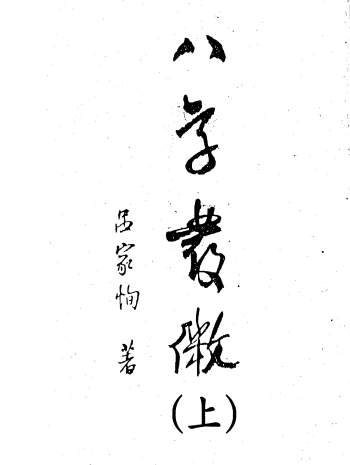 八字發微
(上)
呂家恂 著